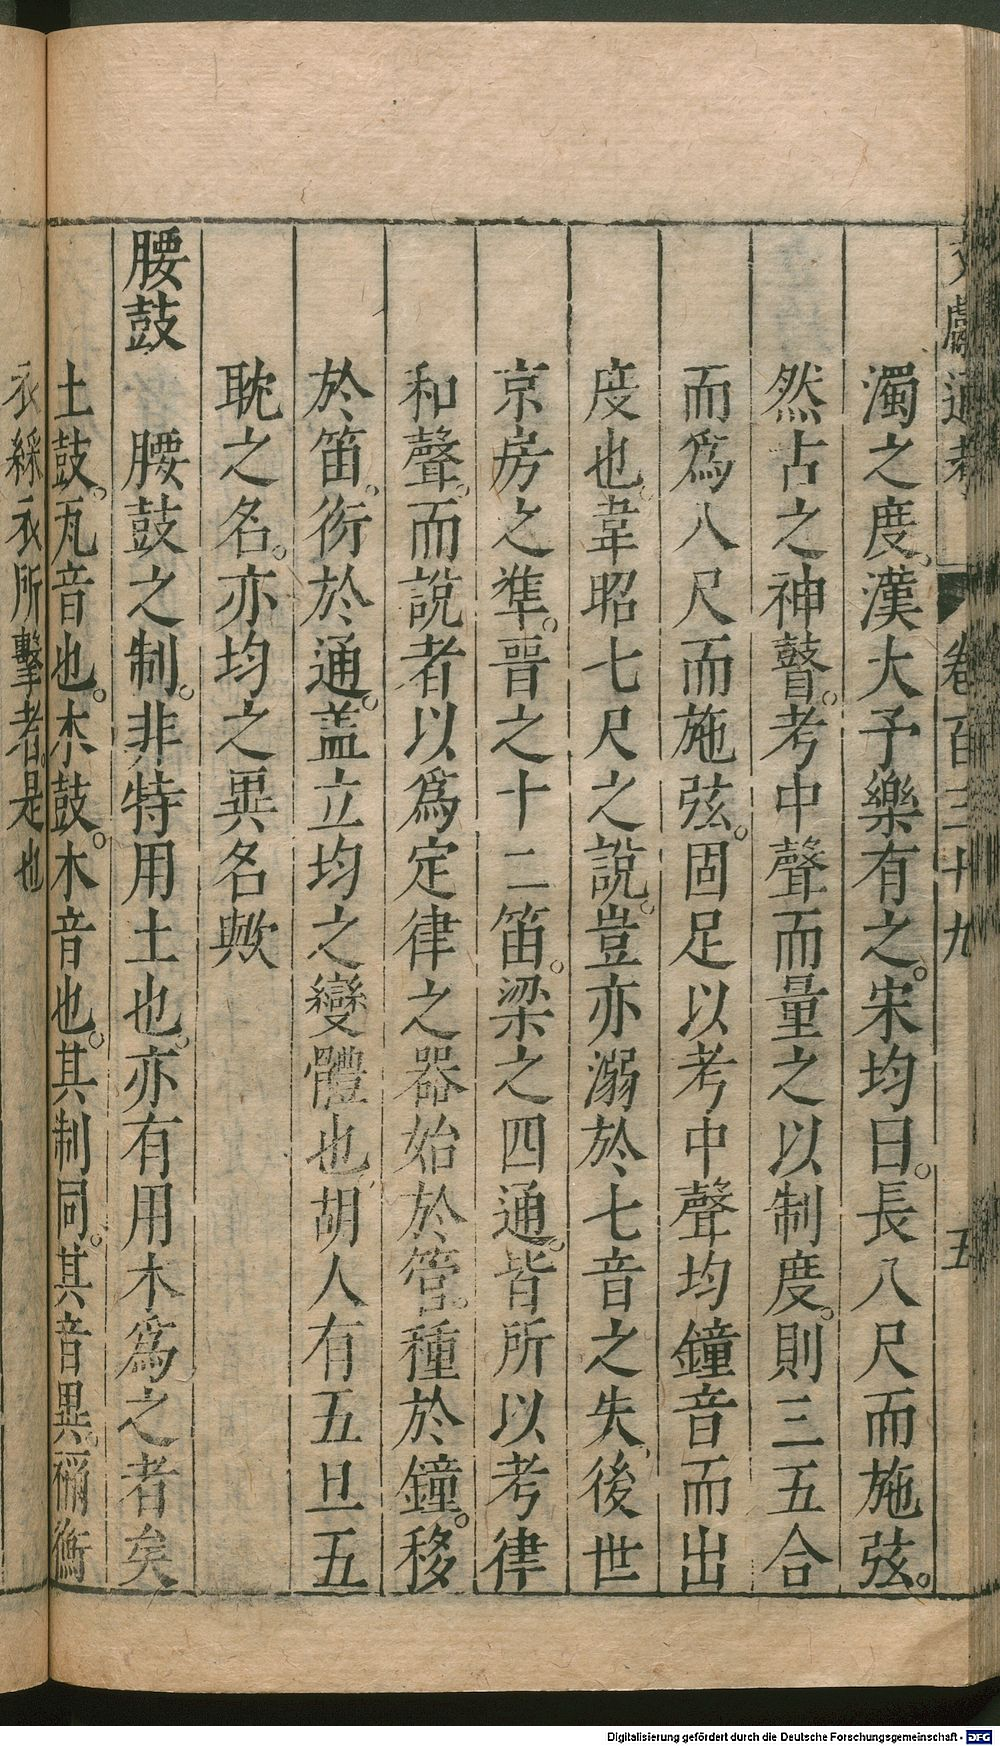 文獻通考 卷百三十九 五
濁之度。漢大予樂有之。宋均曰。長八尺而施弦。
然占之神瞽。考中聲而量之以制度。則三五合
而爲八尺而施弦。固足以考中聲均鐘音而出
度也。韋昭七尺之說。豈亦溺於七音之失、後世
京房之準。晉之十二笛。梁之四通。皆所以考律
和聲。而說者以爲定律之器始於管。種於鐘。移
於笛。衍於通。盖立均之變體也、胡人有五旦五
耽之名。亦均之異名歟
腰鼓 腰鼓之制。非特用土也。亦有用木爲之者矣
土鼓。瓦音也。木鼓。木音也。其制同。其音異。禰衡
衣綵衣所擊者。是也
Digitalisierung gefördert durch die Deutsche Forschungsgemeinschaft - DFG